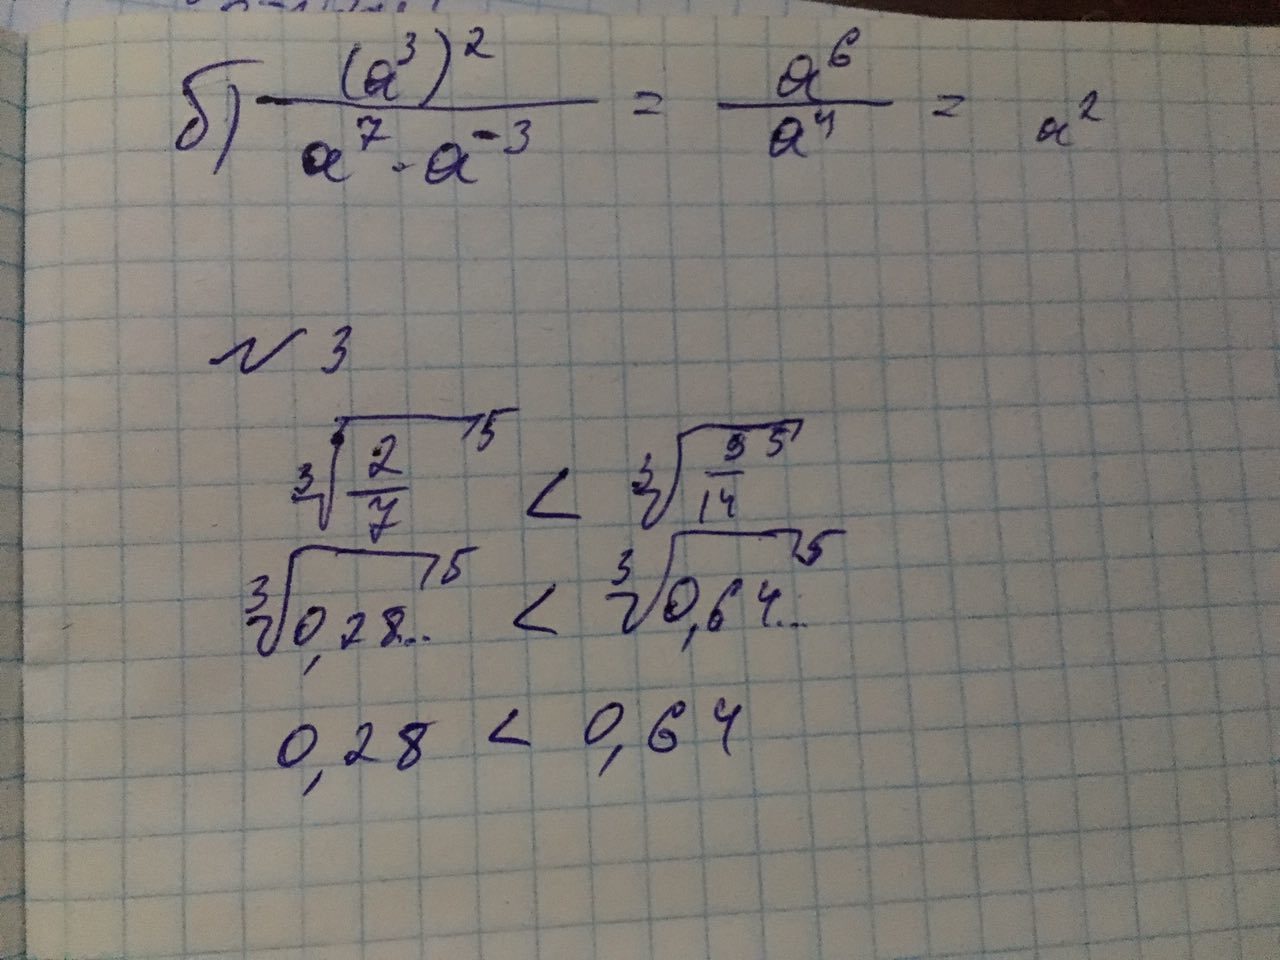 б) (a³)² / a⁷ · a⁻³ = a⁶ / a⁴ = a²
№ 3
³√(2/7)⁵ < ³√(9/14)⁵
³√0,28...⁵ < ³√0,64...⁵
0,28 < 0,64